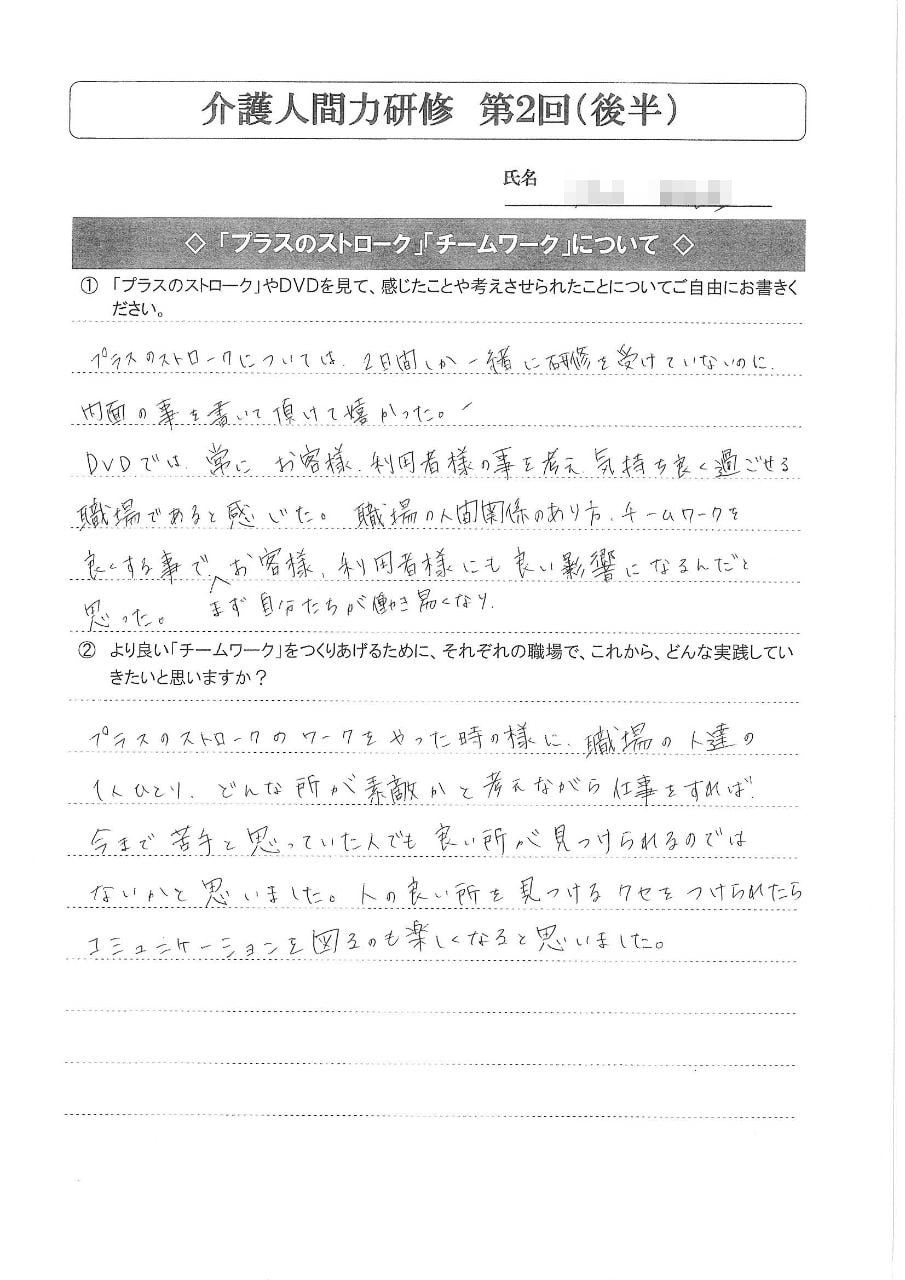 介護人間力研修 第2回(後半)
氏名
◇ 「プラスのストローク」「チームワーク」について ◇
① 「プラスのストローク」やDVDを見て、感じたことや考えさせられたことについてご自由にお書きく
ださい。
プラスのストロークについては、2日間しか一緒に研修を受けていないのに、
内面の事を書いて頂けて嬉かった。
DVDでは、常に お客様、利用者様の事を考え、気持ち良く過ごせる
職場であると感じた。 職場の人間関係のあり方、チームワークを
良くする事で、お客様、利用者様にも良い影響になるんだと
まず自分たちが働き易くなり、
思った。
② より良い「チームワーク」をつくりあげるために、それぞれの職場で、これから、どんな実践してい
きたいと思いますか？
プラスのストロークのワークをやった時の様に、職場の人達の
1人ひとり、どんな所が素敵かと考えながら仕事をすれば、
今まで苦手と思っていた人でも良い所が見つけられるのでは
ないかと思いました。人の良い所を見つけるクセをつけられたら
コミュニケーションを図るのも楽しくなると思いました。